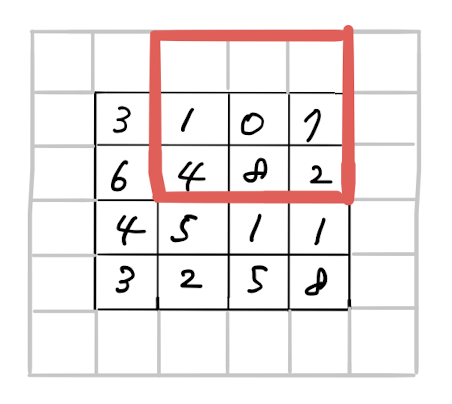 3 1 0 7
6 4 8 2
4 5 1 1
3 2 5 8